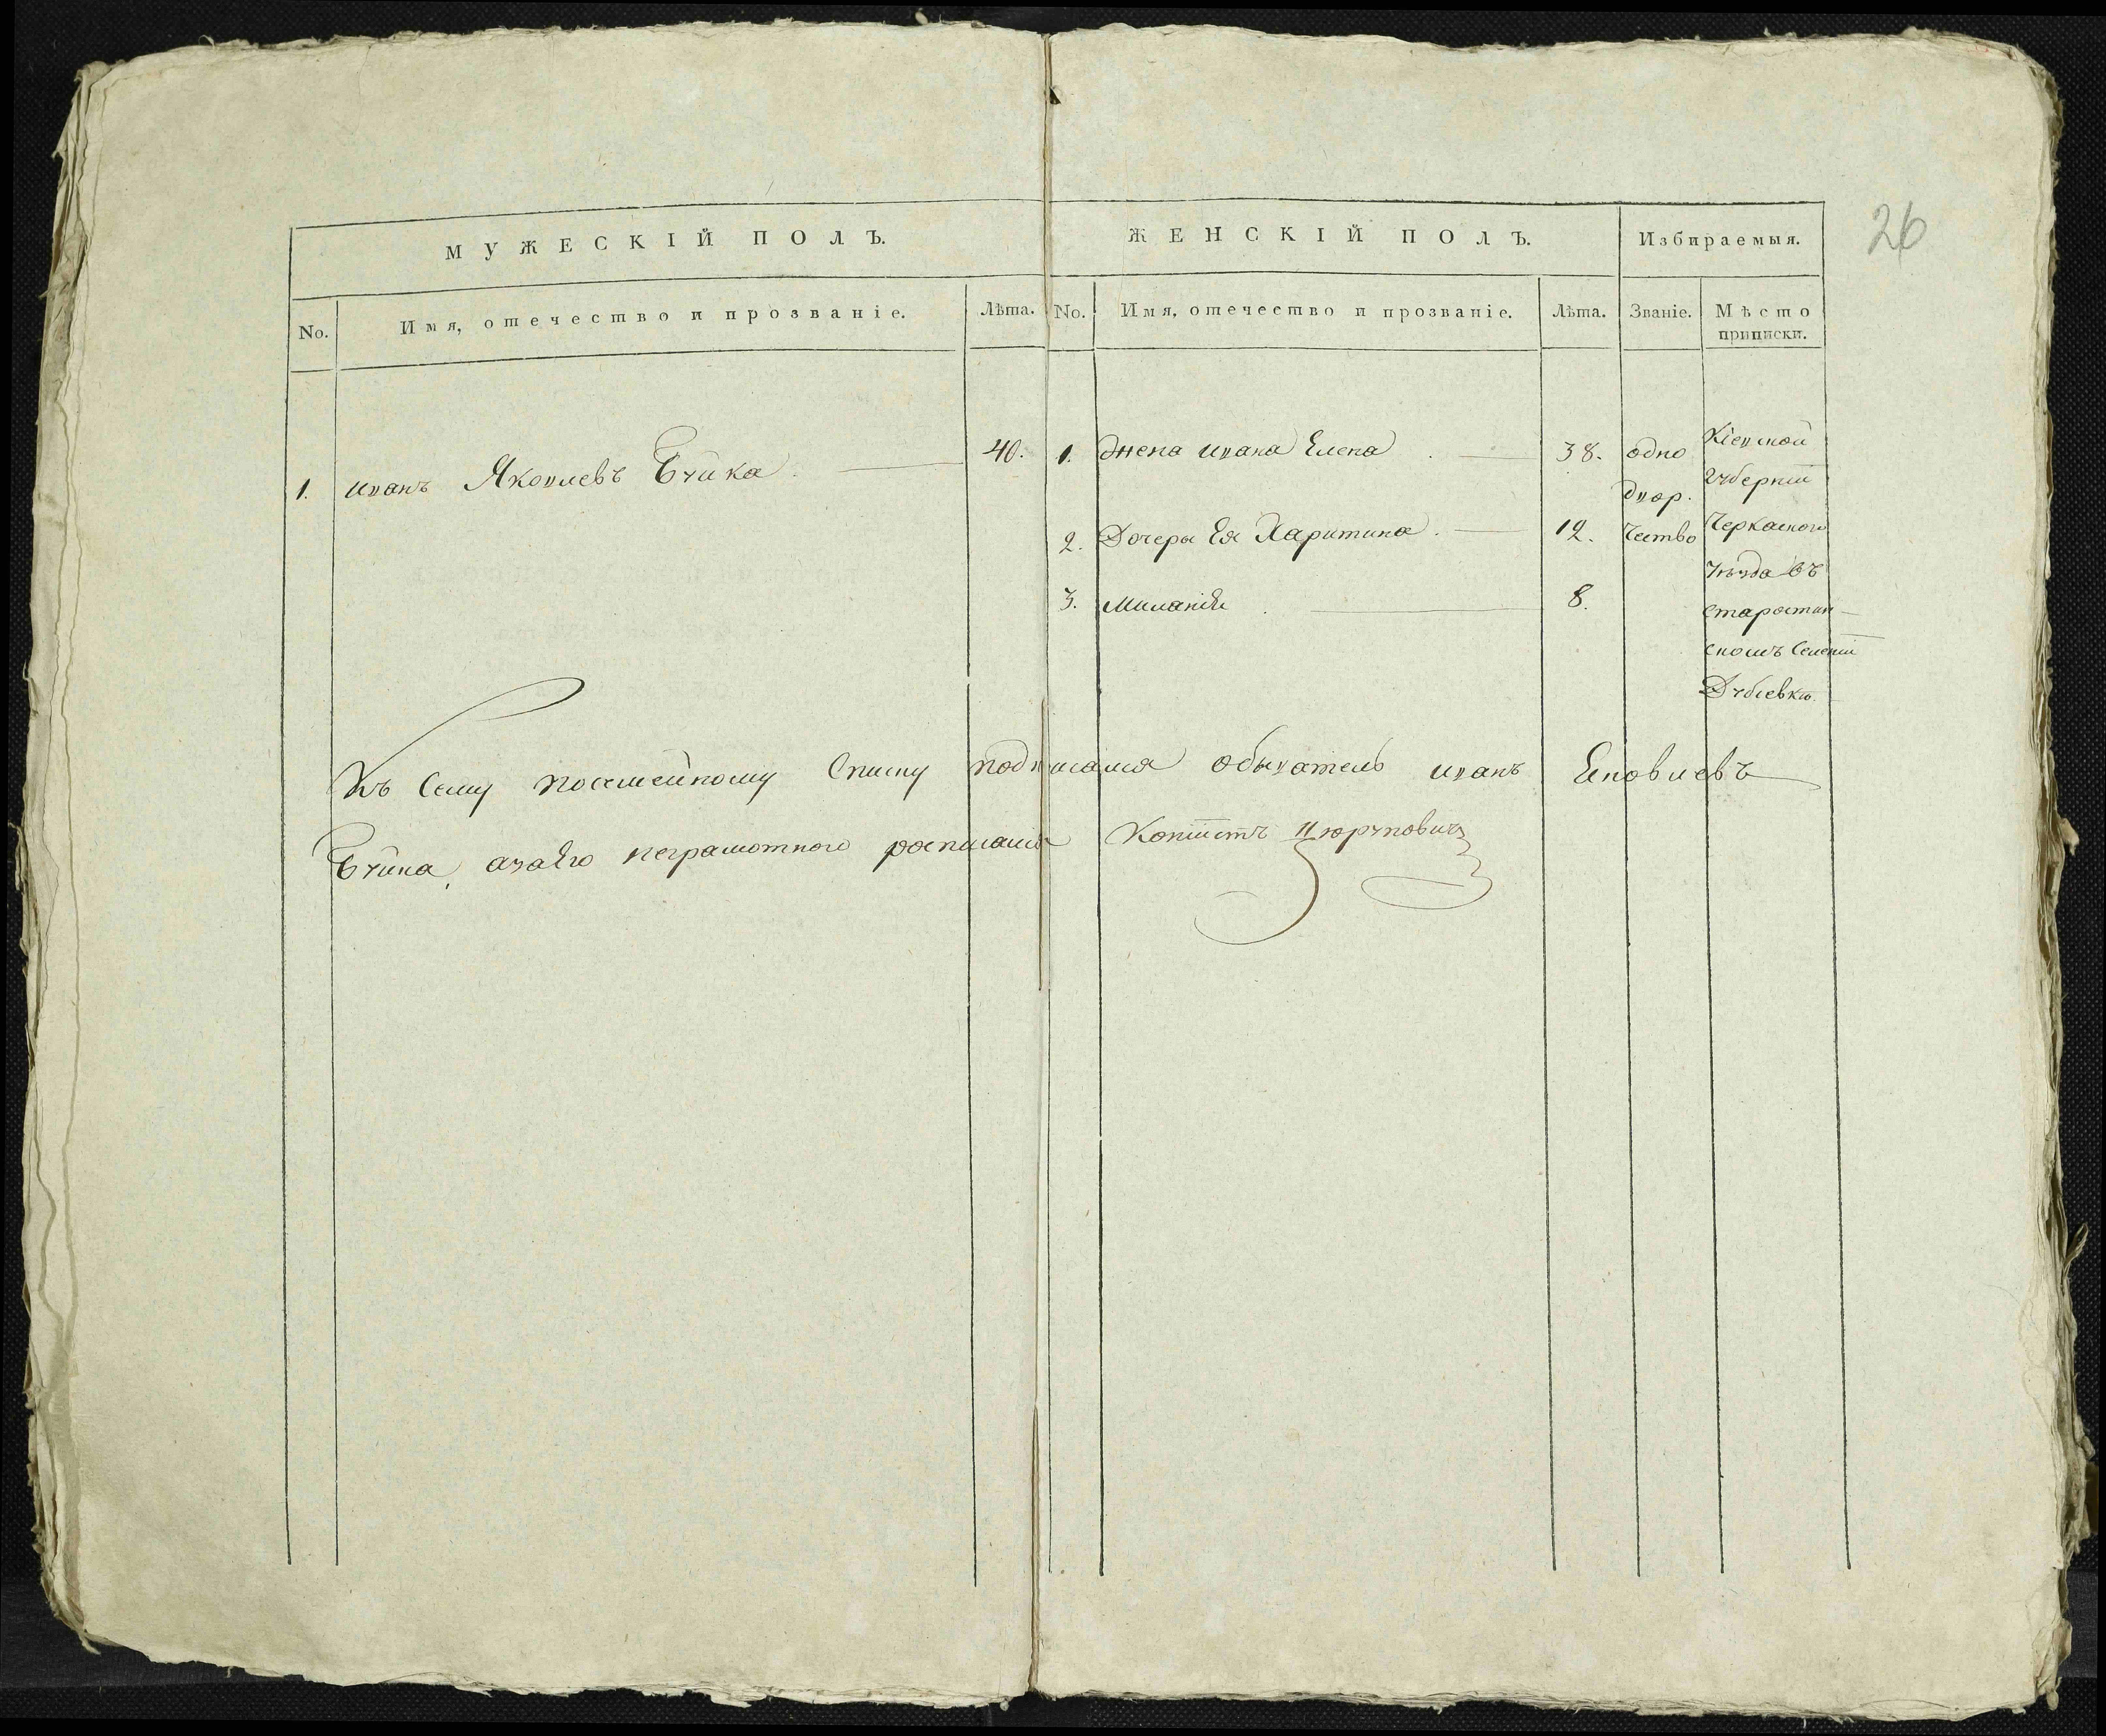 26
МУЖЕСКІЙ ПОЛЪ.
ЖЕНСКІЙ ПОЛЪ.
Избираемыя.
No.
Имя, отечество и прозваніе.
Лѣта.
No.
Имя, отечество и прозваніе.
Лѣта.
Званіе.
Мѣсто
приписки.
1. иванъ Яковлевъ Буйка 40.
1. Жена ивана Елена 38.
2. Дочеры Ея Харитина 12.
3. Миланія 8.
одно
двор.
чество
Кіевской
губерніи
Черкаскаго
уѣзда въ
старостин
скомъ селеніи
Дубіевкѣ.
Къ сему посемейному списку подписался обыватель иванъ Яковлевъ
Буйка, а за Его неграмотного росписался Копіистъ